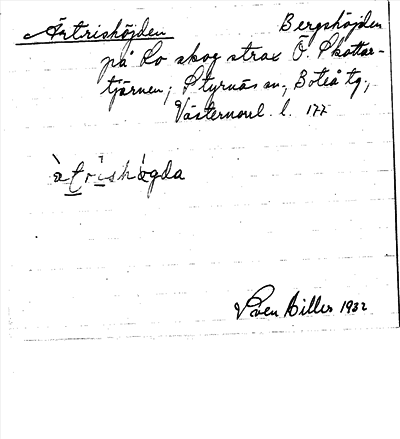 Åtrishöjden Bergshöjden
på Lo skog strax Ö. Skottar-
tjärnen, Styrnäs sn, Boteå tg,
Västernorrl. l. 177
àtrishøgda
Sven Billes 1932